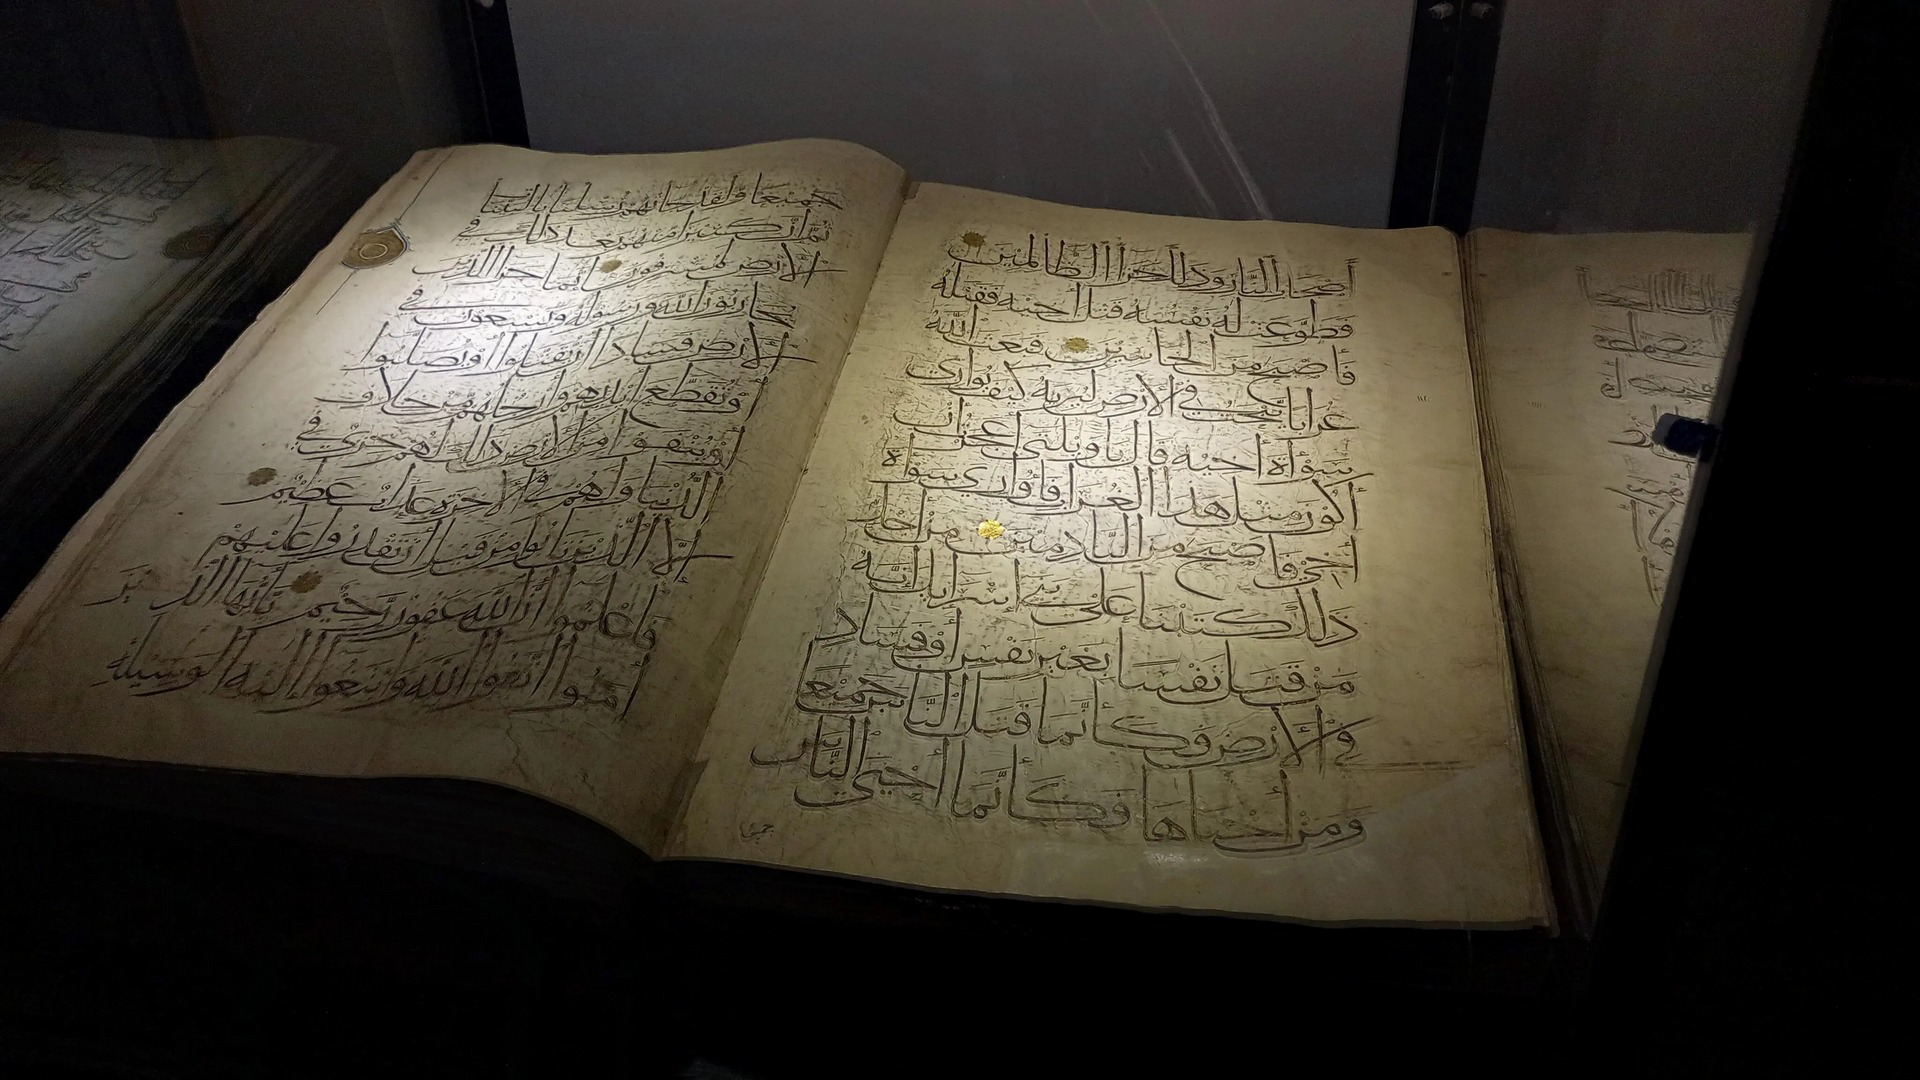 أصحاب النار وذلك جزاء الظالمين
فطوعت له نفسه قتل أخيه فقتله
فأصبح من الخاسرين فبعث الله
غرابا يبحث في الأرض ليريه كيف يواري
سوأة أخيه قال يا ويلتى أعجزت أن
أكون مثل هذا الغراب فأواري سوأة
أخي فأصبح من النادمين من أجل
ذلك كتبنا على بني إسرائيل أنه
من قتل نفسا بغير نفس أو فساد
في الأرض فكأنما قتل الناس جميعا
ومن أحياها فكأنما أحيى الناس
جميعا ولقد جاءتهم رسلنا بالبينات
ثم إن كثيرا منهم بعد ذلك في
الأرض لمسرفون إنما جزاء الذين
يحاربون الله ورسوله ويسعون في
الأرض فسادا أن يقتلوا أو يصلبوا
أو تقطع أيديهم وأرجلهم من خلاف
أو ينفوا من الأرض ذلك لهم خزي في
الدنيا ولهم في الآخرة عذاب عظيم
إلا الذين تابوا من قبل أن تقدروا عليهم
فاعلموا أن الله غفور رحيم يا أيها الذين
آمنوا اتقوا الله وابتغوا إليه الوسيلة